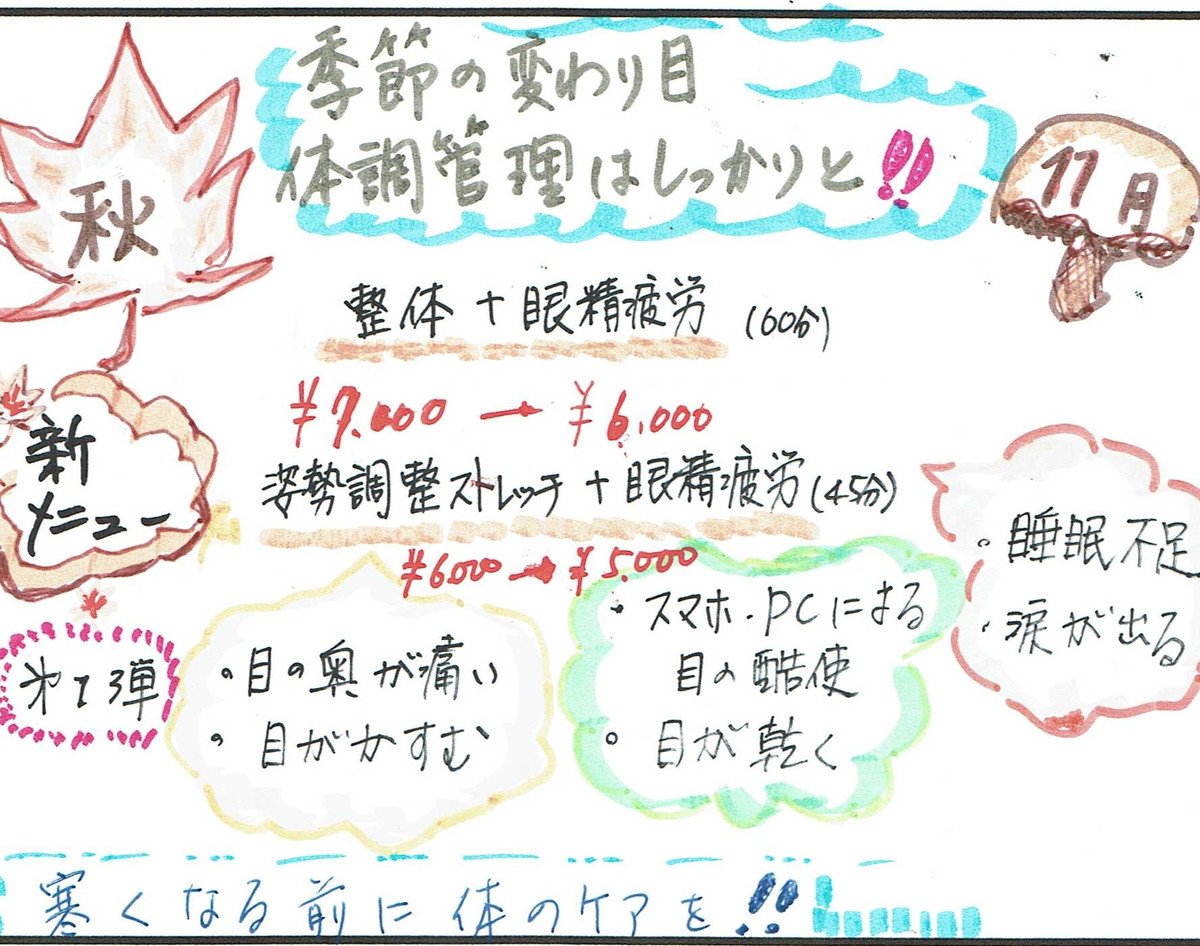 秋
季節の変わり目
体調管理はしっかりと!!
11月
整体+眼精疲労 (60分)
¥7.000 → ¥6,000
新
メニュー
姿勢調整ストレッチ+眼精疲労(45分)
¥6000 → ¥5.000
第1弾
・目の奥が痛い
・目がかすむ
・スマホ・PCによる
目の酷使
・目が乾く
・睡眠不足
・涙が出る
寒くなる前に体のケアを!!